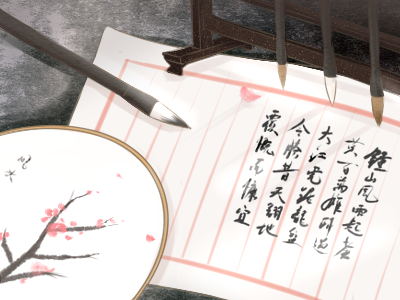 鐘山风雨起苍
黄百万雄师过
大江虎踞龙盘
今胜昔天翻地
覆慨而慷宜